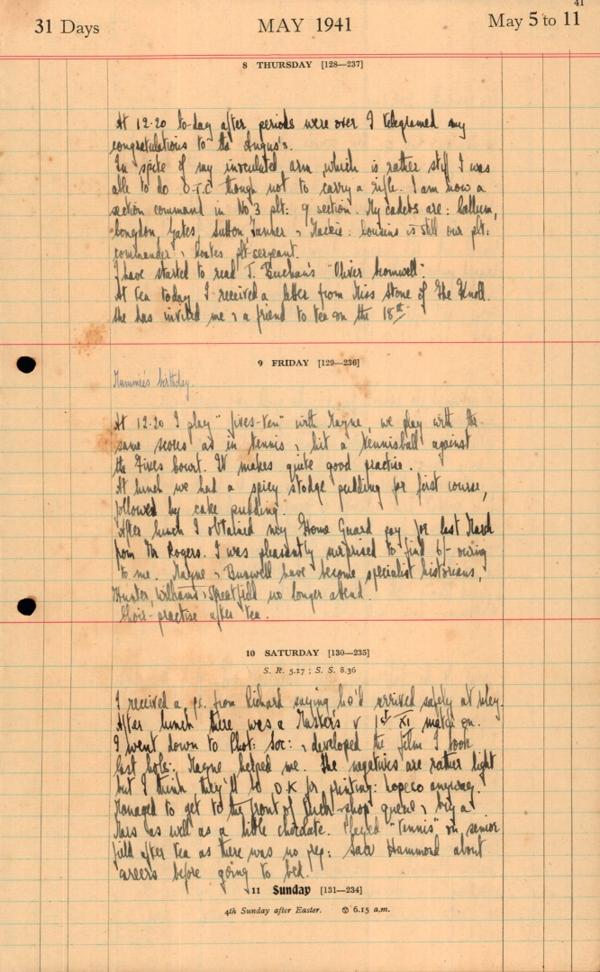 41
31 Days MAY 1941 May 5 to 11
8 THURSDAY [128—237]
At 12.20 to-day after periods were over I telegramed my
congratulations to the Angus's.
In spite of my inoculated arm which is rather stiff I was
able to do O.T.C though not to carry a rifle. I am now a
section command in No 3 plt: 9 section. My cadets are: Callum,
Longdon, Yates, Sutton, Tanker & Mackie: Cousins is still our plt:
commander & plt-sergeant.
I have started to read J. Buchan's "Oliver Cromwell".
At tea today I received a letter from Miss Stone of The Knoll.
She has invited me & a friend to tea on the 18th
9 FRIDAY [129—236]
Mummie's birthday.
At 12.20 I play "fives-ten" with Mayne, we play with the
same scores as in tennis & hit a tennisball against
the Fives Court. It makes quite good practice.
At lunch we had a spicy stodge pudding for first course,
followed by cake pudding.
After lunch I obtained my Home Guard pay for last March
from Mr Rogers. I was pleasantly surprised to find 6/- owing
to me. Mayne & have become specialist historians,
Hunter, Williams & no longer attend.
Choir-practise after tea.
10 SATURDAY [130—235]
S. R. 5.17 ; S. S. 8.36
I received a pc. from Richard saying he'd arrived safely at
After lunch there was a Master's v 1st XI match on.
I went down to Phot: Soc: & developed the film I took
last hols: Mayne helped me. The negatives are rather light
but I think they'll be O.K for printing: anyway.
Managed to get to the front of Tuck-shop queue & buy a
Mars as well as a little chocolate. Played "Tennis" on senior
field after tea as there was no prep: Saw Hammond about
careers before going to bed.
11 Sunday [131—234]
4th Sunday after Easter. 6.15 a.m.